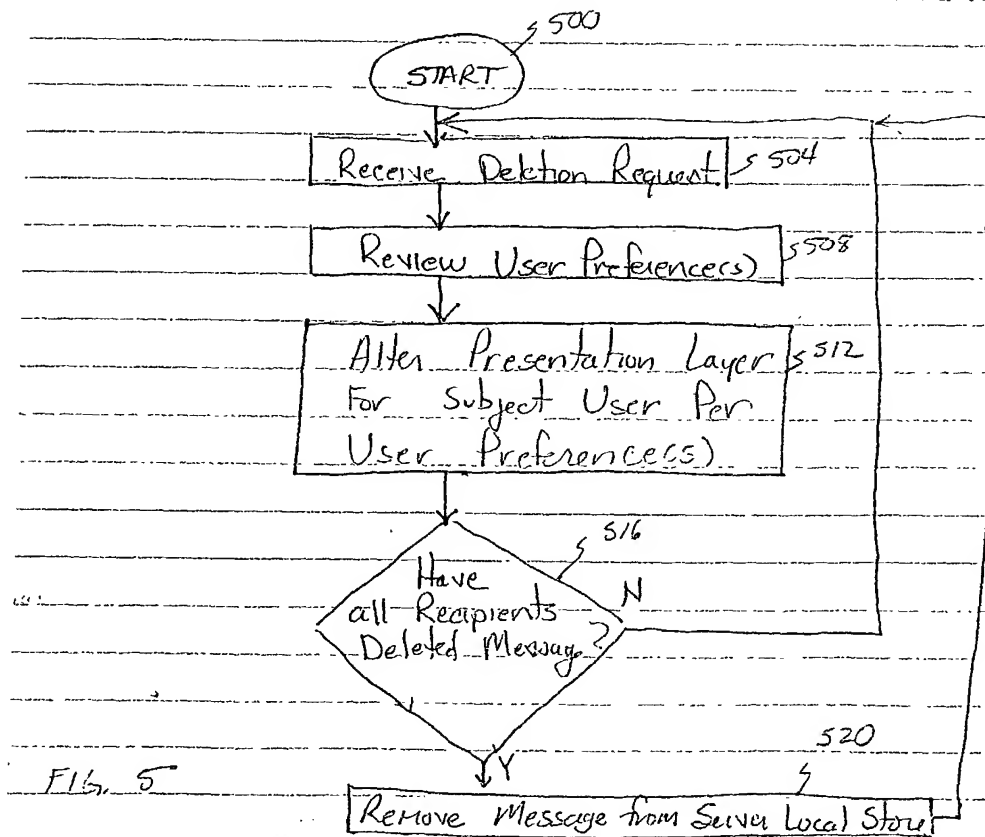 500
START
Receive Deletion Request
504
Review User Preference(s)
508
Alter Presentation Layer
For Subject User Per
User Preference(s)
512
516
Have
all Recipients
Deleted Message?
N
Y
520
FIG. 5
Remove Message from Server Local Store